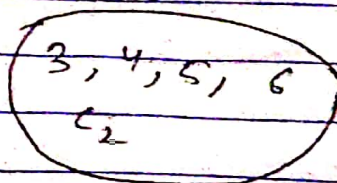 3, 4, 5, 6
C₂